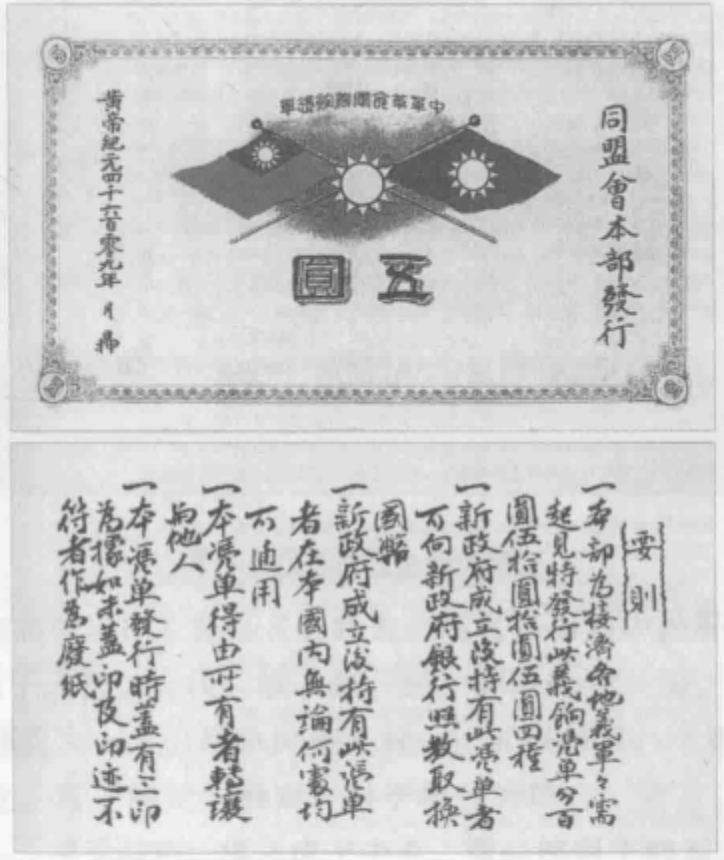 中華革命憑單
同盟會本部發行
五圓
黃帝紀元四千六百零九年 月
要則
一本部為接濟各地義軍々需
起見特發行此義餉憑單分百
圓伍拾圓拾圓伍圓四種
一新政府成立後持有此憑单者
可向新政府銀行照數取換
國幣
一新政府成立後持有此憑单
者在本國內無論何處均
可通用
一本憑单得由所有者轉讓
與他人
一本憑单發行時蓋有三印
為據如未蓋印及印迹不
符者作為廢紙